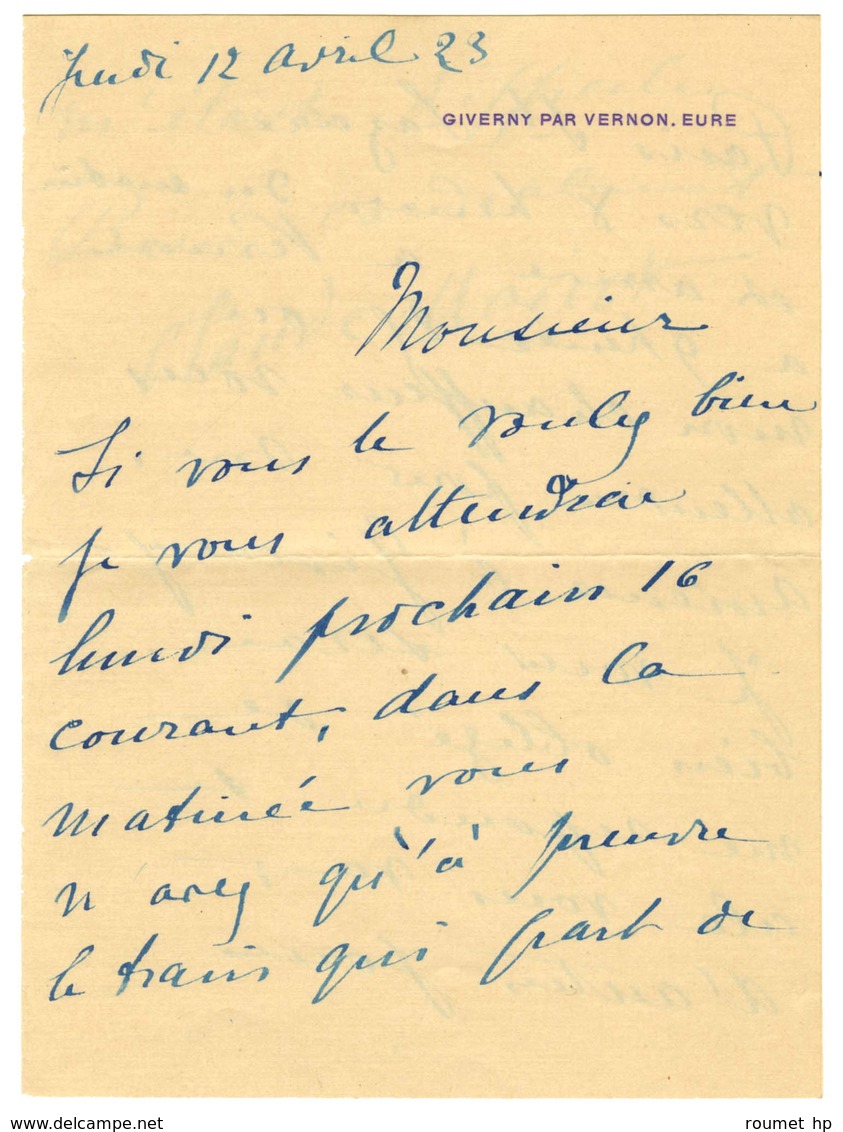 Jeudi 12 avril 23
GIVERNY PAR VERNON. EURE
Monsieur
Si vous le voulez bien
je vous attendrai
lundi prochain 16
courant, dans la
matinée vous
n'avez qu'à prendre
le train qui part de
roumet hp